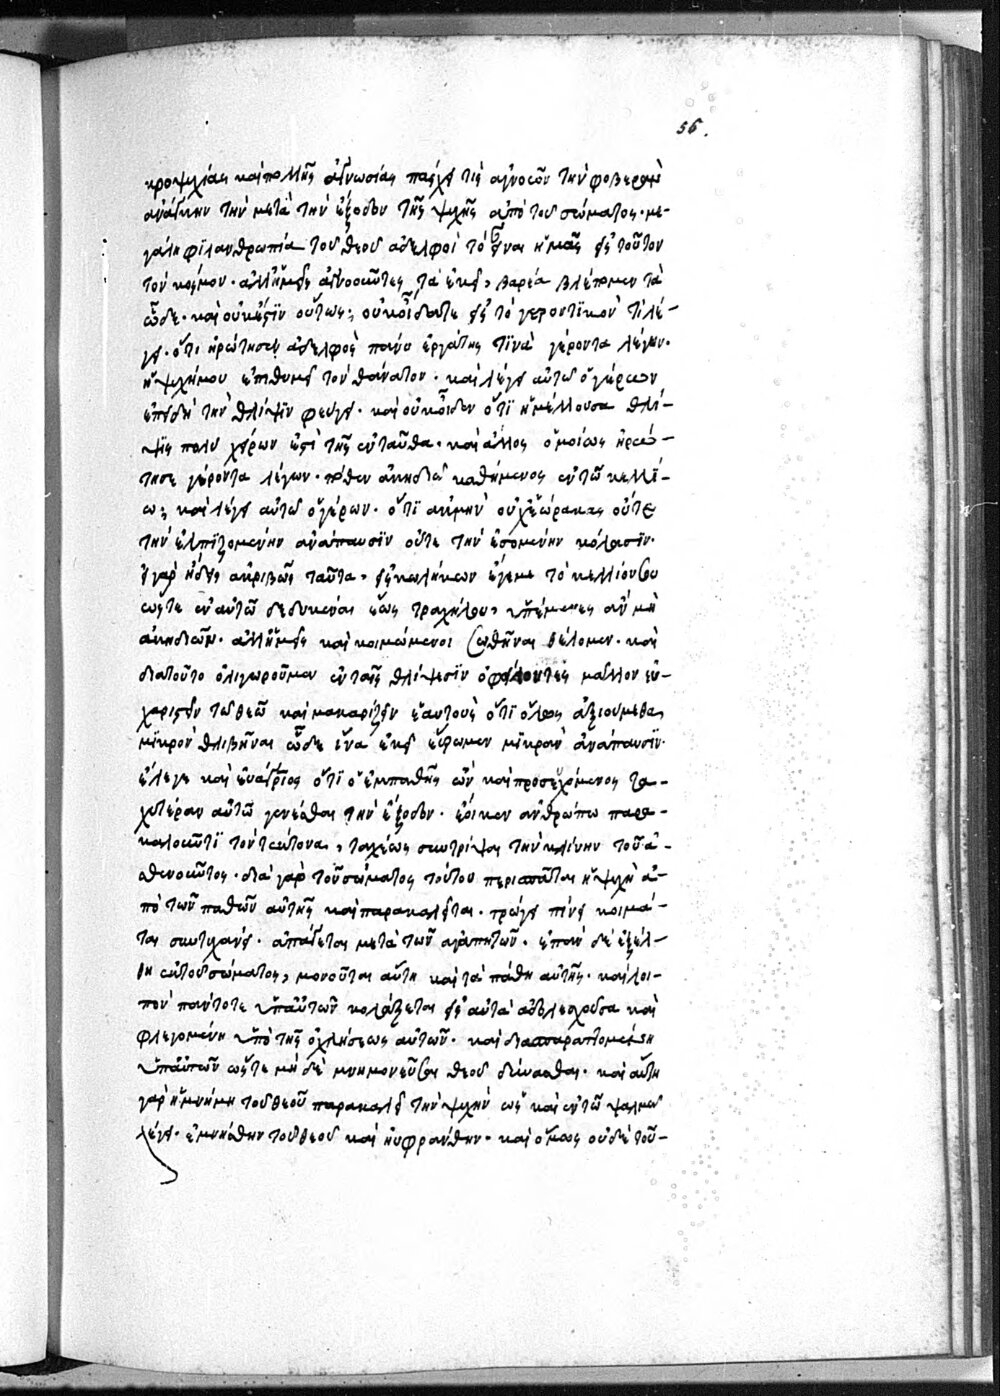 56.
κροψυχίας καὶ πολλῆς ἀγνωσίας πάσχει τις ἀγνοῶν τὴν φοβερὰν
ἀνάγκην τὴν μετὰ τὴν ἔξοδον τῆς ψυχῆς ἀπὸ τοῦ σώματος· με-
γάλη φϊλανθρωπία τοῦ θεοῦ ἀδελφοὶ τὸ εἶναι ἡμᾶς εἰς τοῦτον
τὸν κόσμον· ἀλλ' ἡμεῖς ἀγνοοῦντες τὰ ἐκεῖ, βαρέα βλέπομεν τὰ
ὧδε· καὶ οὐκ ἔστϊν οὕτως; οὐκ οἴδατε εἰς τὸ γεροντϊκὸν τί λέ-
γει· ὅτι ἠρώτησεν ἀδελφὸς πάνυ ἐργάτης τϊνὰ γέροντα λέγων·
ἡ ψυχή μου ἐπιθυμεῖ τὸν θάνατον· καὶ λέγει αὐτῶ ὁ γέρων
ἐπειδὴ τὴν θλίψϊν φεύγει· καὶ οὐκ οἶδεν ὅτϊ ἡ μέλλουσα θλί-
ψϊς πολὺ χείρων ἐστὶ τῆς ἐνταῦθα· καὶ ἄλλος ὁμοίως ἠρώ-
τησε γέροντα λέγων· πόθεν ἀκηδιῶ καθήμενος ἐν τῶ κελλί-
ω; καὶ λέγει αὐτῶ ὁ γέρων· ὅτϊ ἀκμὴν οὐχ ἑώρακας οὔτε
τὴν ἐλπιζομένην ἀνάπαυσϊν οὔτε τὴν ἐσομένην κόλασϊν·
εἰ γὰρ ᾔδεις ἀκριβῶς ταῦτα, εἰ σκωλήκων ἔγεμε τὸ κελλίον σου
ὥστε ἐν αὐτῶ δεδυκέναι ἕως τραχήλου, ὑπέμενες ἂν μὴ
ἀκηδιῶν· ἀλλ' ἡμεῖς καὶ κοιμώμενοι σωθῆναι θέλομεν· καὶ
διατοῦτο ὀλιγωροῦμεν ἐν ταῖς θλίψεσϊν ὀφείλοντες μᾶλλον εὐ-
χαριστεῖν τῶ θεῶ καὶ μακαρίζειν ἑαυτοὺς ὅτϊ ὅλως ἀξιούμεθα
μϊκρὸν θλιβῆναι ὧδε ἵνα ἐκεῖ εὕρωμεν μϊκρὰν ἀνάπαυσϊν·
ἔλεγε καὶ εὐάγριος ὅτϊ ὁ ἐμπαθὴς ὢν καὶ προσευχόμενος τα-
χυτέραν αὐτῶ γενέσθαι τὴν ἔξοδον· ἔοικεν ἀνθρώπω παρα-
καλοῦντϊ τὸν τέκτονα, ταχέως συντρίψαι τὴν κλίνην τοῦ ἀ-
σθενοῦντος· διὰ γὰρ τοῦ σώματος τούτου περισπᾶται ἡ ψυχὴ ἀ-
πὸ τῶν παθῶν αὐτῆς καὶ παρακαλεῖται· τρώγει πίνει κοιμᾶ-
ται συντυχάνει· ἀπάγεται μετὰ τῶν ἀγαπητῶν· ἐπὰν δὲ ἐξέλ-
θη ἐκ τοῦ σώματος, μονοῦται αὕτη καὶ τὰ πάθη αὐτῆς· καὶ λοι-
πὸν πάντοτε ὑπ' αὐτῶν κολάζεται εἰς αὐτὰ ἀδολεσχοῦσα καὶ
φλεγομένη ὑπὸ τῆς ὀχλήσεως αὐτῶν· καὶ διασπαραττομένη
ὑπ' αὐτῶν ὥστε μὴ δὲ μνημονεῦσαι θεοῦ δύνασθαι· καὶ αὕτη
γὰρ ἡ μνήμη τοῦ θεοῦ παρακαλεῖ τὴν ψυχὴν ὡς καὶ ἐν τῶ ψαλμῶ
λέγει· ἐμνήσθην τοῦ θεοῦ καὶ ηὐφράνθην· καὶ ὅμως οὐδὲ τοῦ-